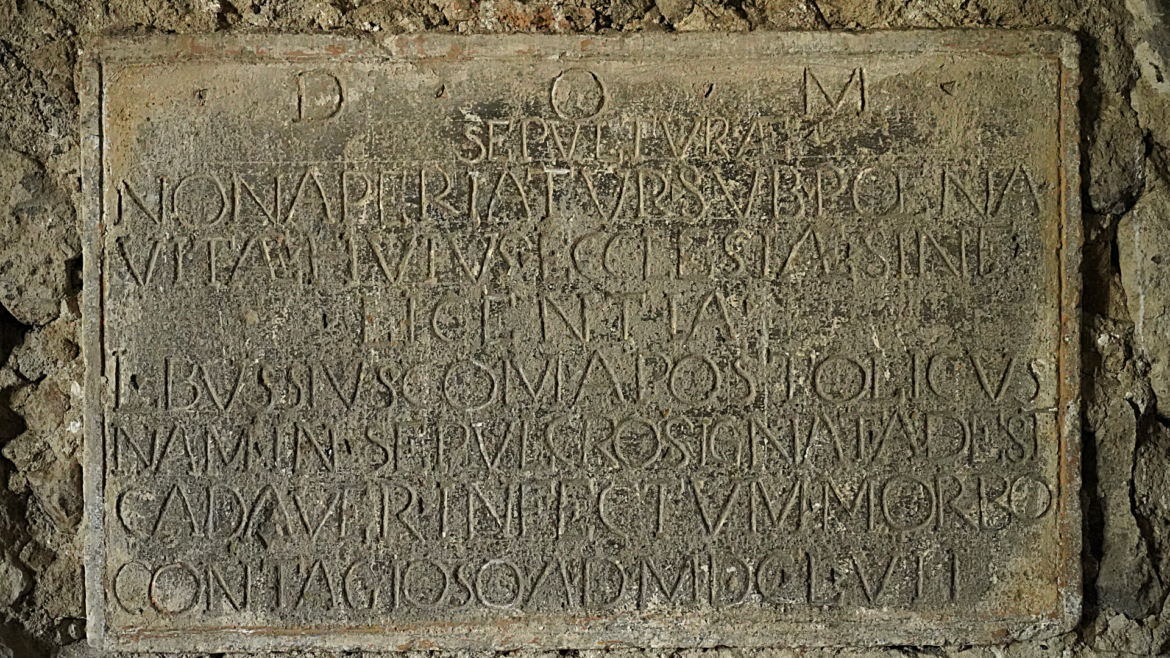 D O M
SEPVLTVRA
NON APERIATVR SVB POENA
VITÆ HVIVS ECCLESIÆ SINE
LICENTIA
I. BVSSIVS COM APOSTOLICVS
NAM IN SEPVLCRO SIGNATA DEST
CADAVER INFECTVM MORBO
CONTAGIOSO A D MDCLVII